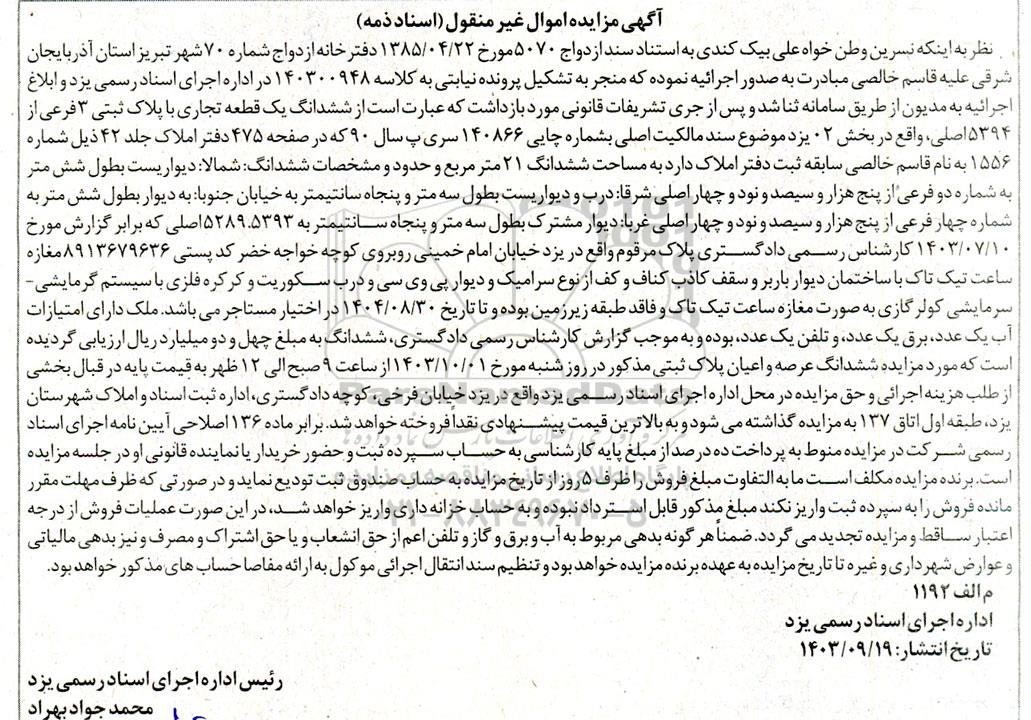 آگهی مزایده اموال غیر منقول (اسناد ذمه)
نظر به اینکه نسرین وطن خواه علی بیک کندی به استناد سند ازدواج ۵۰۷۰ مورخ ۱۳۸۵/۰۴/۲۲ دفترخانه ازدواج شماره ۷۰ شهر تبریز استان آذربایجان
شرقی علیه قاسم خالصی مبادرت به صدور اجرائیه نموده که منجر به تشکیل پرونده نیابتی به کلاسه ۱۴۰۳۰۰۹۴۸ در اداره اجرای اسناد رسمی یزد و ابلاغ
اجرائیه به مدیون از طریق سامانه ثنا شد و پس از جری تشریفات قانونی مورد بازداشت که عبارت است از ششدانگ یک قطعه تجاری با پلاک ثبتی ۳ فرعی از
۵۳۹۴ اصلی، واقع در بخش ۰۲ یزد موضوع سند مالکیت اصلی بشماره چاپی ۱۴۰۸۶۶ سری پ سال ۹۰ که در صفحه ۴۷۵ دفتر املاک جلد ۴۲ ذیل شماره
۱۵۵۶ به نام قاسم خالصی سابقه ثبت دفتر املاک دارد به مساحت ششدانگ ۲۱ متر مربع و حدود و مشخصات ششدانگ: شمالا: دیواریست بطول شش متر
به شماره دو فرعی از پنج هزار و سیصد و نود و چهار اصلی شرقا: درب و دیواریست بطول سه متر و پنجاه سانتیمتر به خیابان جنوبا: به دیوار بطول شش متر به
شماره چهار فرعی از پنج هزار و سیصد و نود و چهار اصلی غربا: دیوار مشترک بطول سه متر و پنجاه سانتیمتر به ۵۲۸۹.۵۳۹۳ اصلی که برابر گزارش مورخ
۱۴۰۳/۰۷/۱۰ کارشناس رسمی دادگستری پلاک مرقوم واقع در یزد خیابان امام خمینی روبروی کوچه خواجه خضر کد پستی ۸۹۱۳۶۷۹۶۳۶ مغازه
ساعت تیک تاک با ساختمان دیوار باربر و سقف کاذب کناف و کف از نوع سرامیک و دیوار پی وی سی و درب سکوریت و کرکره فلزی با سیستم گرمایشی-
سرمایشی کولر گازی به صورت مغازه ساعت تیک تاک و فاقد طبقه زیرزمین بوده و تا تاریخ ۱۴۰۴/۰۸/۳۰ در اختیار مستاجر می باشد. ملک دارای امتیازات
آب یک عدد، برق یک عدد، و تلفن یک عدد، بوده و به موجب گزارش کارشناس رسمی دادگستری، ششدانگ به مبلغ چهل و دو میلیارد ریال ارزیابی گردیده
است که مورد مزایده ششدانگ عرصه و اعیان پلاک ثبتی مذکور در روز شنبه مورخ ۱۴۰۳/۱۰/۰۱ از ساعت ۹ صبح الی ۱۲ ظهر به قیمت پایه در قبال بخشی
از طلب هزینه اجرائی و حق مزایده در محل اداره اجرای اسناد رسمی یزد واقع در یزد خیابان فرخی، کوچه دادگستری، اداره ثبت اسناد و املاک شهرستان
یزد، طبقه اول اتاق ۱۳۷ به مزایده گذاشته می شود و به بالاترین قیمت پیشنهادی نقداً فروخته خواهد شد. برابر ماده ۱۳۶ اصلاحی آیین نامه اجرای اسناد
رسمی شرکت در مزایده منوط به پرداخت ده درصد از مبلغ پایه کارشناسی به حساب سپرده ثبت و حضور خریدار یا نماینده قانونی او در جلسه مزایده
است. برنده مزایده مکلف است ما به التفاوت مبلغ فروش را ظرف ۵ روز از تاریخ مزایده به حساب صندوق ثبت تودیع نماید و در صورتی که ظرف مهلت مقرر
مانده فروش را به سپرده ثبت واریز نکند مبلغ مذکور قابل استرداد نبوده و به حساب خزانه داری واریز خواهد شد، در این صورت عملیات فروش از درجه
اعتبار ساقط و مزایده تجدید می گردد. ضمناً هر گونه بدهی مربوط به آب و برق و گاز و تلفن اعم از حق انشعاب و یا حق اشتراک و مصرف و نیز بدهی مالیاتی
و عوارض شهرداری و غیره تا تاریخ مزایده به عهده برنده مزایده خواهد بود و تنظیم سند انتقال اجرائی موکول به ارائه مفاصا حساب های مذکور خواهد بود.
م الف ۱۱۹۲
اداره اجرای اسناد رسمی یزد
تاریخ انتشار: ۱۴۰۳/۰۹/۱۹
رئیس اداره اجرای اسناد رسمی یزد
محمد جواد بهراد